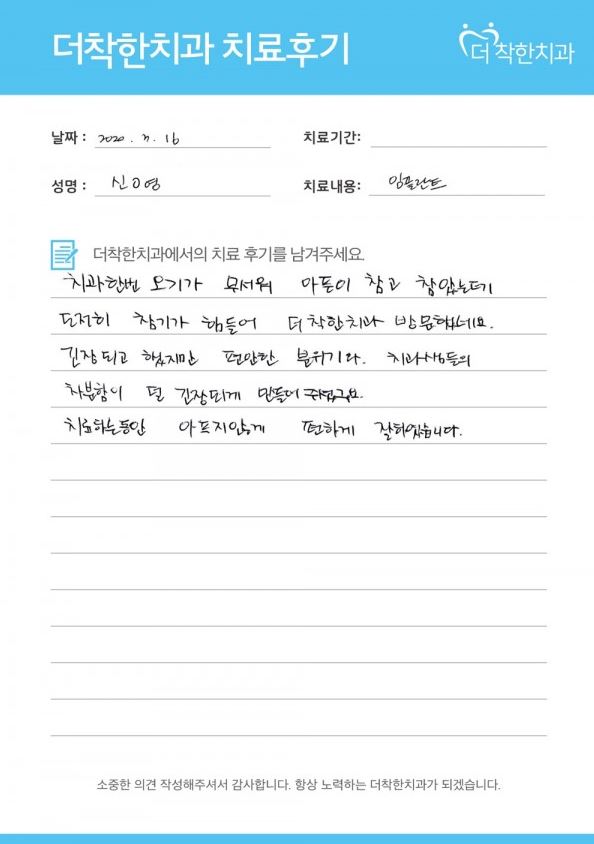 더착한치과 치료후기
더착한치과
날짜 : 2020. 7. 16
치료기간:
성명 : 신O영
치료내용: 임플란트
더착한치과에서의 치료 후기를 남겨주세요.
치과한번 오기가 무서워 아픈이 참고 참았는데
도저히 참기가 힘들어 더착한치과 방문했네요.
긴장되고 했지만 편안한 분위기와. 치과샘들의
차분함이 덜 긴장되게 만들어 주셨구요.
치료하는동안 아프지않게 편하게 잘하였습니다.
소중한 의견 작성해주셔서 감사합니다. 항상 노력하는 더착한치과가 되겠습니다.